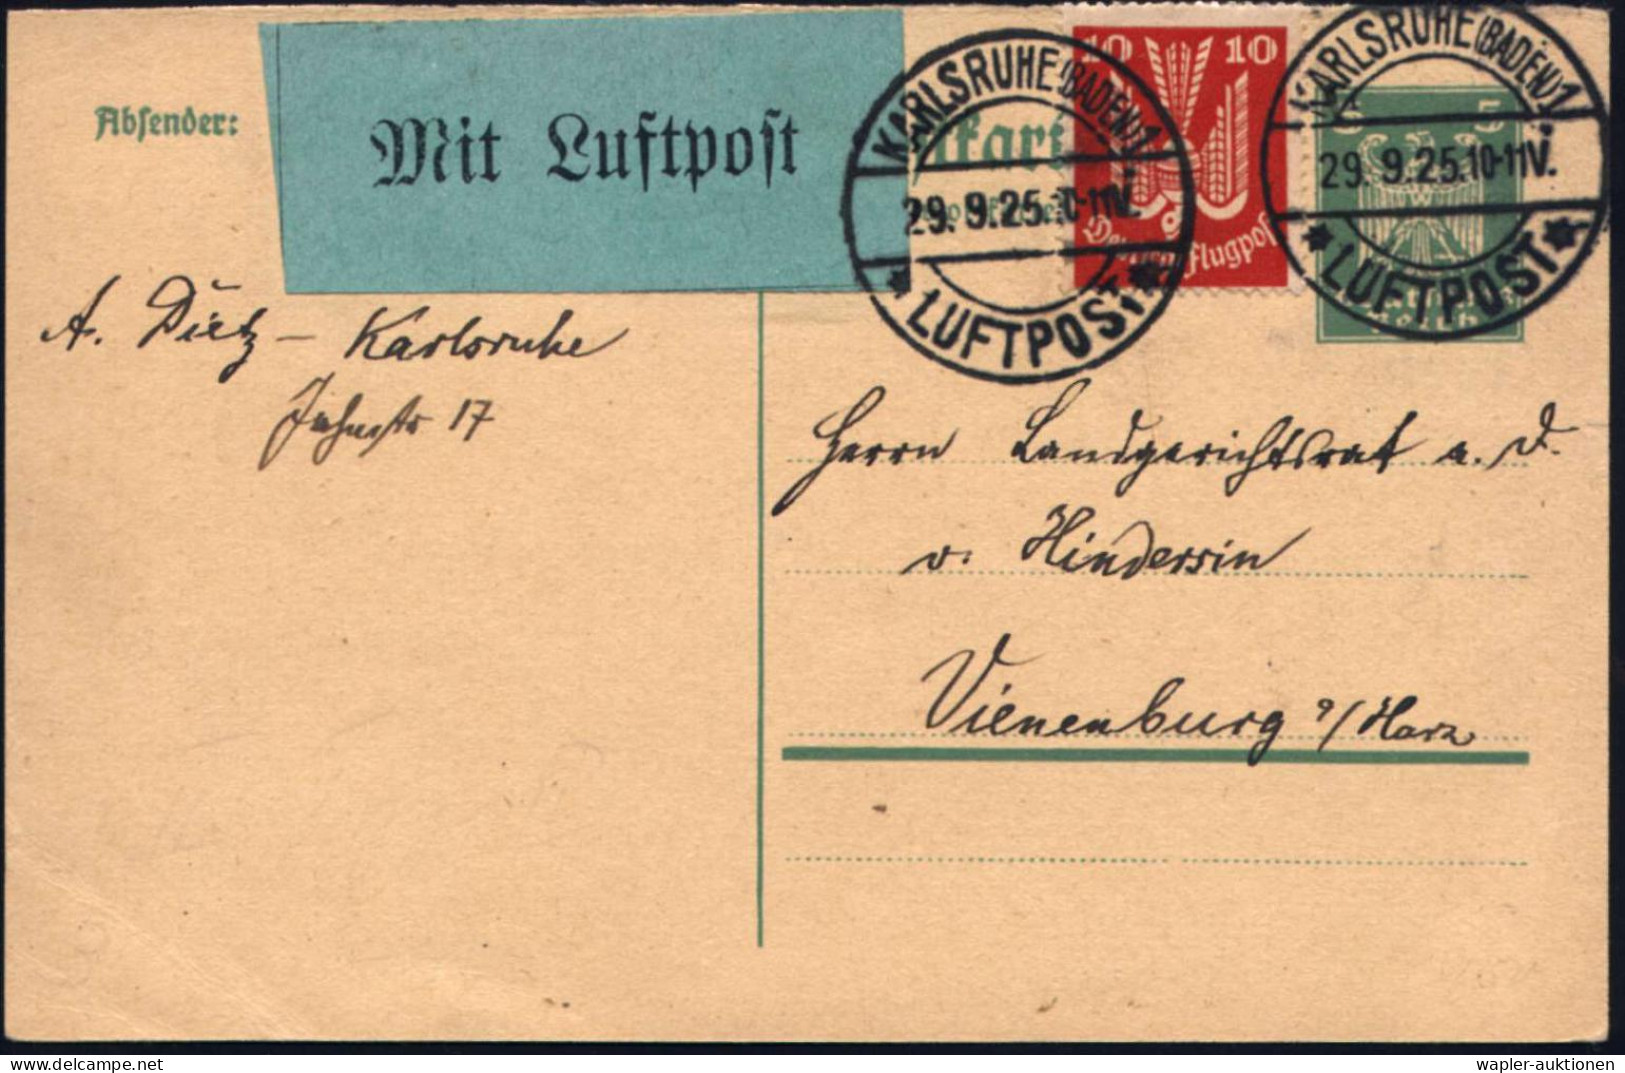 Absender:
Mit Luftpost
KARLSRUHE (BADEN) 1
29.9.25.10-11V.
* LUFTPOST *
10 10
Deutsche Flugpost
KARLSRUHE (BADEN) 1
29.9.25.10-11V.
* LUFTPOST *
5 5
Reich
A. Dietz – Karlsruhe
Jahnstr 17
Herrn Landgerichtsrat a. D.
v. Hindersin
Vienenburg a/Harz
wapler-auktionen